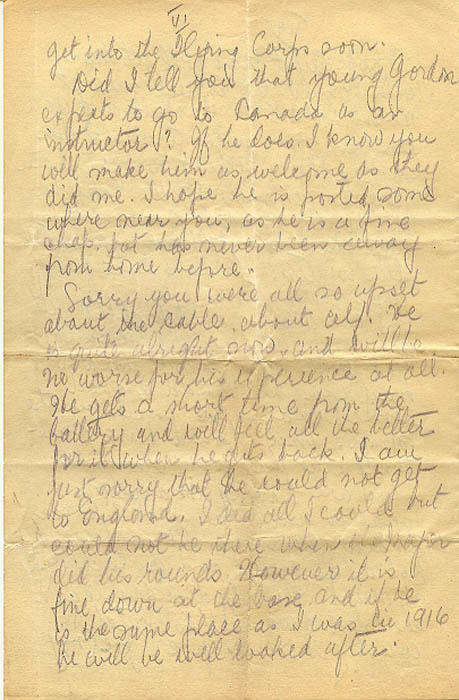 VI
get into the Flying Corps soon.
Did I tell you that young Gordon
expects to go to Canada as an
instructor? If he does I know you
will make him as welcome as they
did me. I hope he is posted some
where near you, as he is a fine
chap, but has never been away
from home before.
Sorry you were all so upset
about the cable about Alf. He
is quite alright now, and will be
no worse for his experience at all.
He gets a short time from the
battery and will feel all the better
for it when he gets back. I am
just sorry that he could not get
to England. I did all I could but
could not be there when the Major
did his rounds. However it is
fine down at the base and if he
is the same place as I was in 1916
he will be well looked after.